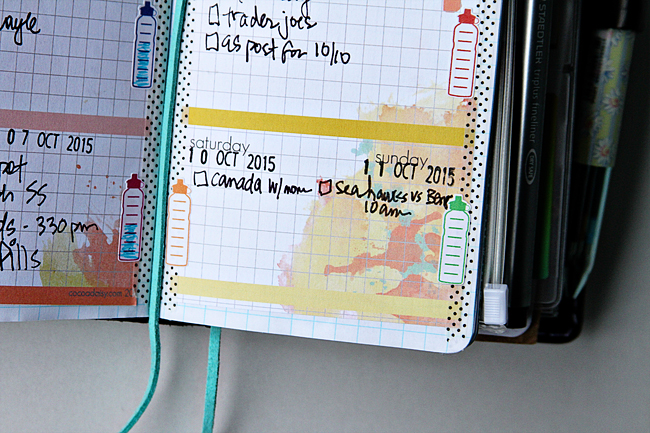 ayle
07 OCT 2015
SS
- 330pm
pills
cocoadaisy.com
trader joes
as post for 10/10
saturday
10 OCT 2015
canada w/ mom
sunday
11 OCT 2015
seahawks vs Beng
10am
STAEDTLER triplus fineliner